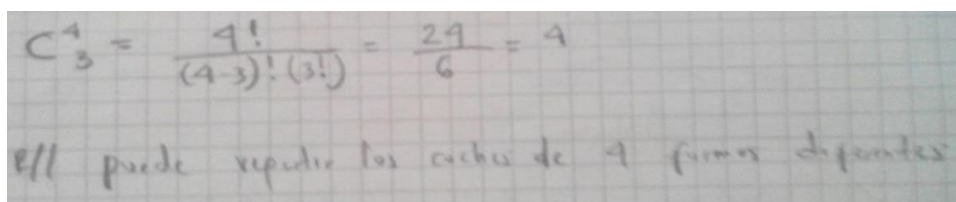 C⁴₃ = 4! / (4-3)! (3!) = 24 / 6 = 4
R// puede repartir los coches de 4 formas diferentes